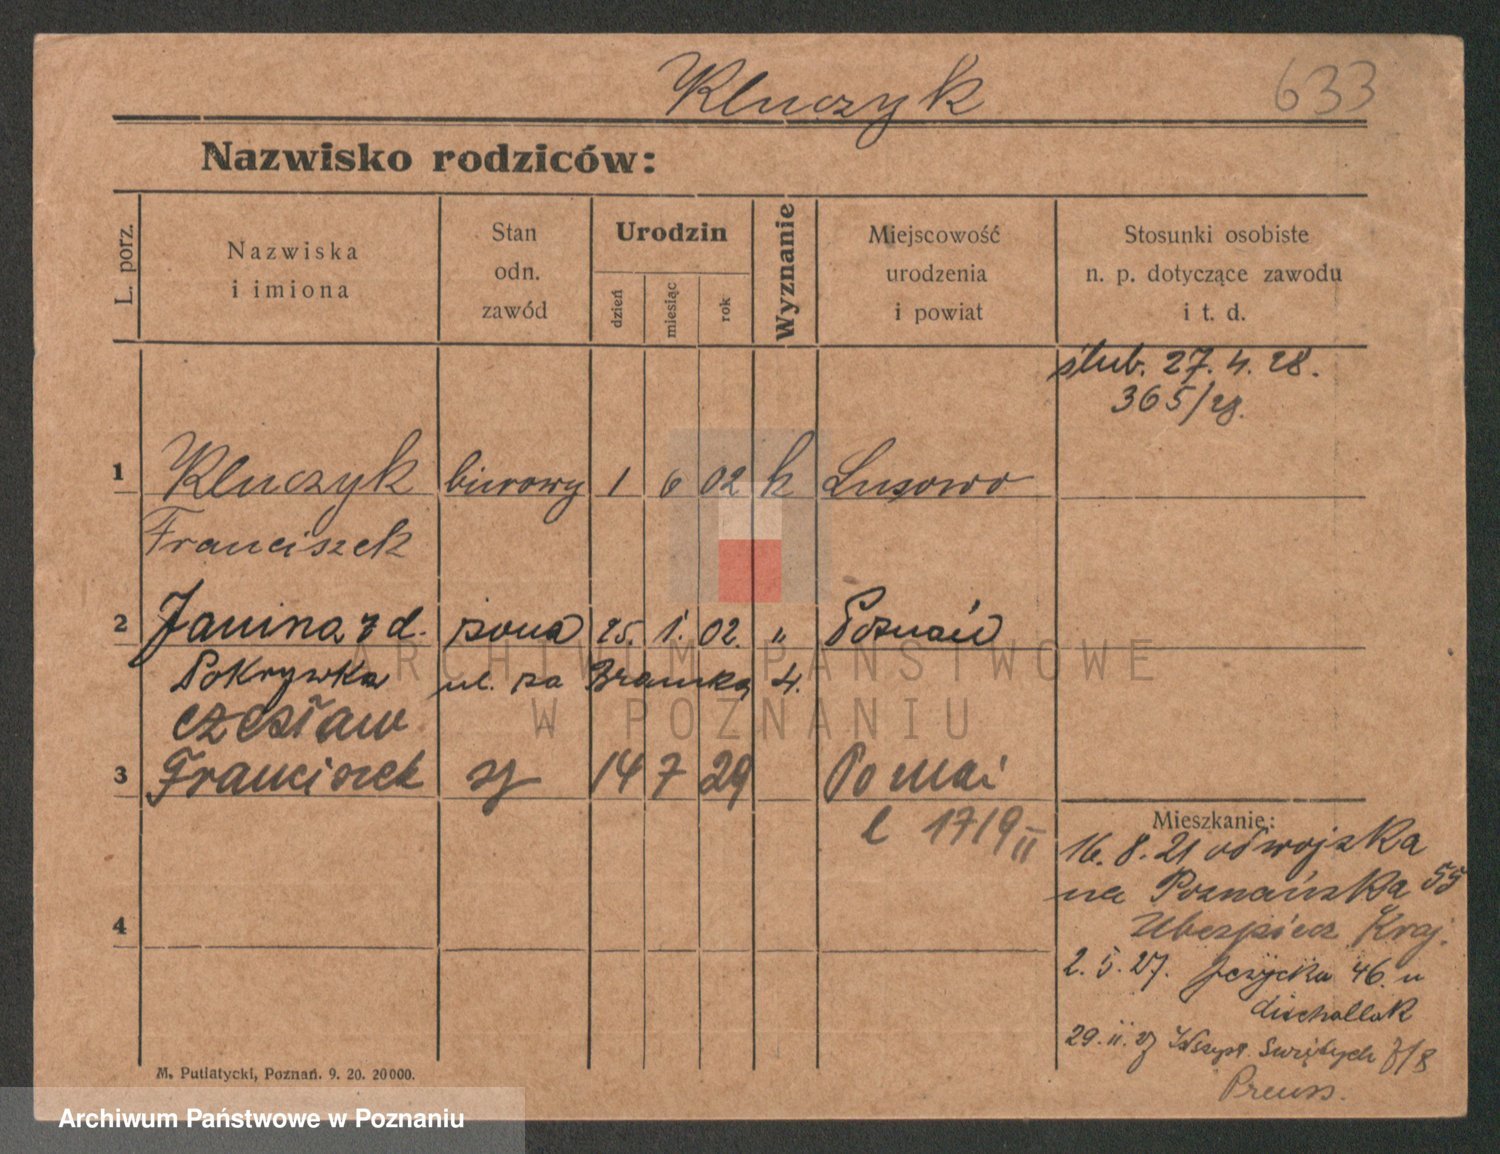 Kluczyk 633
Nazwisko rodziców:
L. porz.
Nazwiska
i imiona
Stan
odn.
zawód
Urodzin
dzień
miesiąc
rok
Wyznanie
Miejscowość
urodzenia
i powiat
Stosunki osobiste
n. p. dotyczące zawodu
i t. d.
ślub. 27. 4. 28.
365/28.
1 Kluczyk biurowy 1 6 02 k Lusowo
Franciszek
2 Janina z d. żona 25. 1. 02. " Poznań
Pokrywka ul. za Bramką 4.
Czesław
3 Franciszek sy 14 7 29 Poznań
l 1719 II
4
Mieszkanie:
16. 8. 21 od wojska
na Poznańska 55
Ubezpiecz. Kraj.
2. 5. 27. Jeżycka 46. u
29. II. 27 Wszyst. Świętych 7/8
Preuss.
M. Putiatycki, Poznań. 9. 20. 20000.
ARCHIWUM PAŃSTWOWE
W POZNANIU
Archiwum Państwowe w Poznaniu